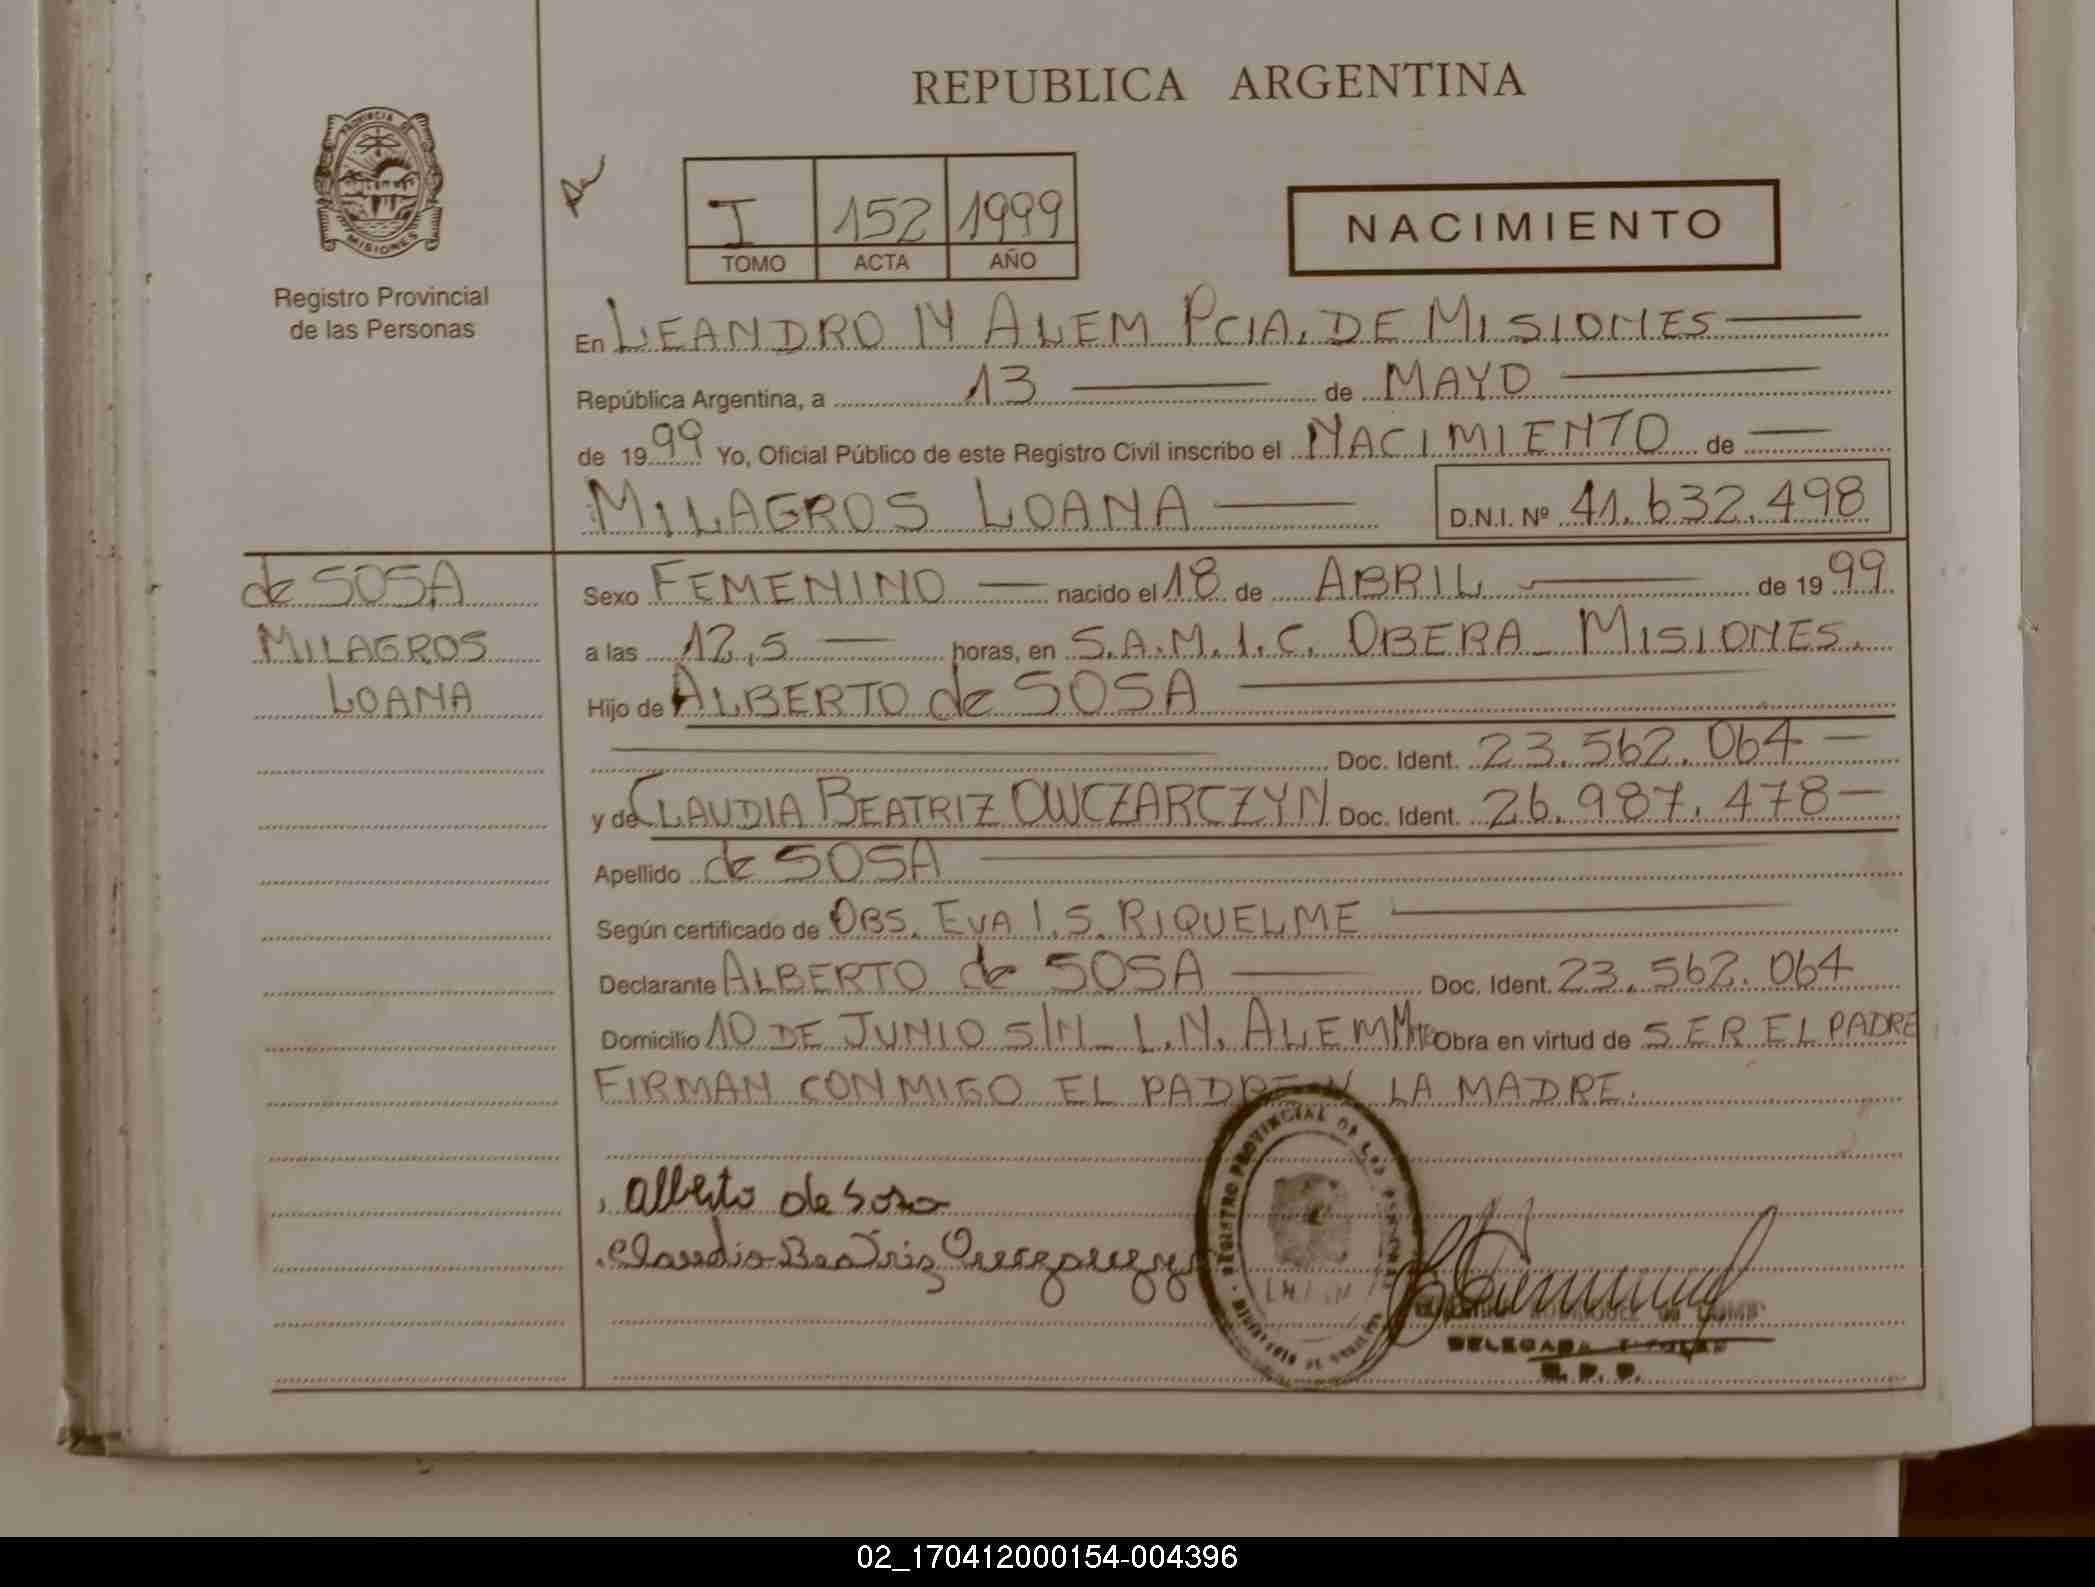 REPUBLICA ARGENTINA
PROVINCIA DE
MISIONES
Registro Provincial
de las Personas
I 152 1999
TOMO ACTA AÑO
NACIMIENTO
En LEANDRO N ALEM PCIA. DE MISIONES
República Argentina, a 13 de MAYO
de 1999 Yo, Oficial Público de este Registro Civil inscribo el NACIMIENTO de
MILAGROS LOANA D.N.I. Nº 41.632.498
de SOSA
MILAGROS
LOANA
Sexo FEMENINO nacido el 18 de ABRIL de 1999
a las 12,5 horas, en S.A.M.I.C. OBERA - MISIONES.
Hijo de ALBERTO de SOSA
Doc. Ident. 23.562.064
y de CLAUDIA BEATRIZ OWCZARCZYN Doc. Ident. 26.987.478
Apellido de SOSA
Según certificado de OBS. EVA I. S. RIQUELME
Declarante ALBERTO de SOSA Doc. Ident. 23.562.064
Domicilio 10 DE JUNIO S/N - L.N. ALEM Obra en virtud de SER EL PADRE
FIRMAN CONMIGO EL PADRE Y LA MADRE.
Alberto de Sosa
Claudia Beatriz
REGISTRO PROVINCIAL DE LAS PERSONAS
DELEGADA TITULAR
R. P. P.
02_170412000154-004396